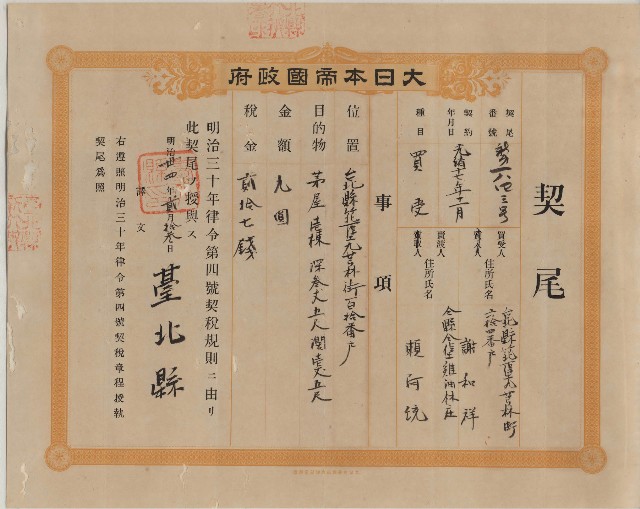 大日本帝國政府
契尾
契尾番號
第一八〇三号
契約年月日
光緒十七年十一月
種目
買受
買受人
住所氏名
六拾四番戶
謝和祥
賣渡人
住所氏名
賴阿統
事項
位置
台北縣竹北一堡九芎林街百拾番戶
目的物
茅屋壹棟 深叁丈五尺 濶壹丈五尺
金額
九圓
稅金
貳拾七錢
明治三十年律令第四號契稅規則ニ由リ
此契尾ヲ授與ス
明治卅四年貳月拾叁日
臺北縣
譯文
右遵照明治三十年律令第四號契稅章程授執
契尾爲照